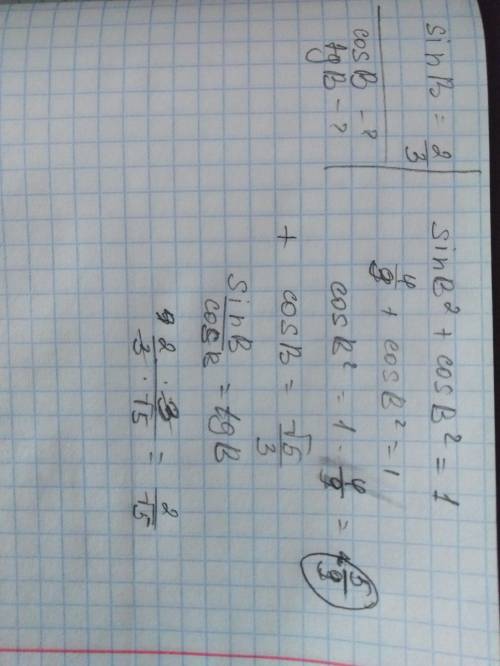 sinB = 2/3
cosB - ?
tgB - ?
sinB² + cosB² = 1
4/9 + cosB² = 1
cosB² = 1 - 4/9 = 5/9
+ cosB = √5/3
sinB/cosB = tgB
2 · 3 / 3 · √5 = 2/√5